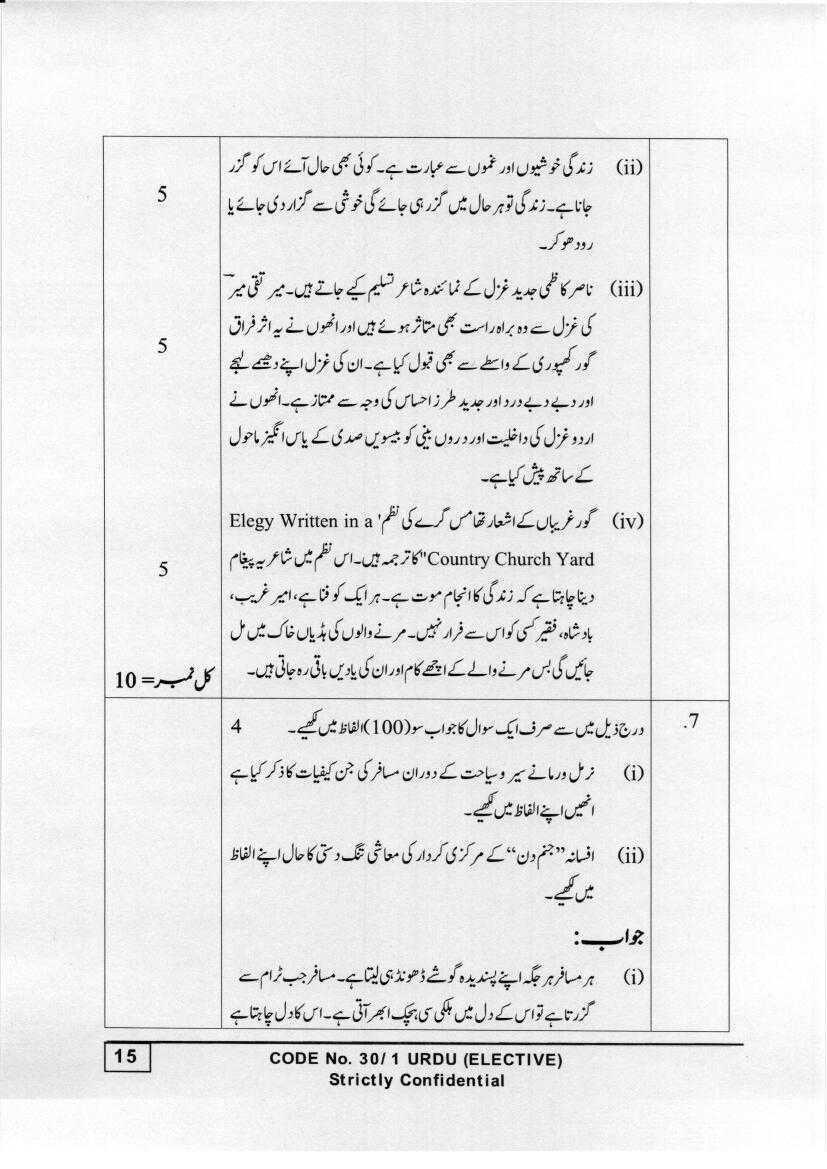 (ii) زندگی خوشیوں اور غموں سے عبارت ہے۔ کوئی بھی حال آئے اس کو گزر
5 جانا ہے۔ زندگی تو ہر حال میں گزر ہی جائے گی خوشی سے گزار دی جائے یا
رو دھو کر۔
(iii) ناصر کاظمی جدید غزل کے نمائندہ شاعر تسلیم کیے جاتے ہیں۔ میر تقی میرؔ
کی غزل سے وہ براہ راست بھی متاثر ہوئے ہیں اور انھوں نے یہ اثر فراق
5 گورکھپوری کے واسطے سے بھی قبول کیا ہے۔ ان کی غزل اپنے دھیمے لہجے
اور دبے دبے درد اور جدید طرز احساس کی وجہ سے ممتاز ہے۔ انھوں نے
اردو غزل کی داخلیت اور دروں بینی کو بیسویں صدی کے یاس انگیز ماحول
کے ساتھ پیش کیا ہے۔
(iv) گور غریباں کے اشعار تھامس گرے کی نظم 'Elegy Written in a
5 Country Church Yard" کا ترجمہ ہیں۔ اس نظم میں شاعر یہ پیغام
دینا چاہتا ہے کہ زندگی کا انجام موت ہے۔ ہر ایک کو فنا ہے، امیر غریب،
بادشاہ، فقیر کسی کو اس سے فرار نہیں۔ مرنے والوں کی ہڈیاں خاک میں مل
جائیں گی بس مرنے والے کے اچھے کام اور ان کی یادیں باقی رہ جاتی ہیں۔
کل نمبر = 10
7. درج ذیل میں سے صرف ایک سوال کا جواب سو (100) الفاظ میں لکھیے۔ 4
(i) نرمل ورما نے سیر و سیاحت کے دوران مسافر کی جن کیفیات کا ذکر کیا ہے
انھیں اپنے الفاظ میں لکھیے۔
(ii) افسانہ ”جنم دن“ کے مرکزی کردار کی معاشی تنگ دستی کا حال اپنے الفاظ
میں لکھیے۔
جواب:
(i) ہر مسافر ہر جگہ اپنے پسندیدہ گوشے ڈھونڈ ہی لیتا ہے۔ مسافر جب ٹرام سے
گزرتا ہے تو اس کے دل میں ہلکی سی ہچک ابھر آتی ہے۔ اس کا دل چاہتا ہے
15 CODE No. 30/1 URDU (ELECTIVE)
Strictly Confidential